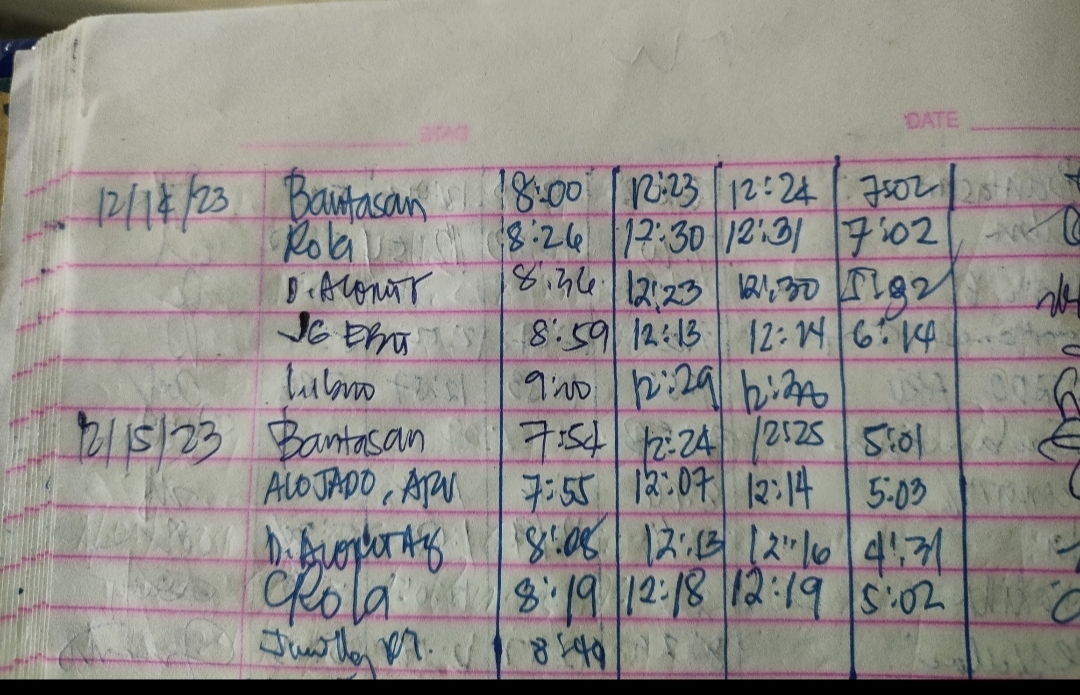 DATE
12/14/23 Bantasan 8:00 12:23 12:24 7:02
Rola 8:26 12:30 12:31 7:02
8:36 12:23 12:30
JG 8:59 12:13 12:14 6:14
9:00 12:29
12/15/23 Bantasan 7:54 12:24 12:25 5:01
ALOJADO, 7:55 12:07 12:14 5:03
D. 8:08 12:13 12:16 4:31
CRola 8:19 12:18 12:19 5:02
8:49